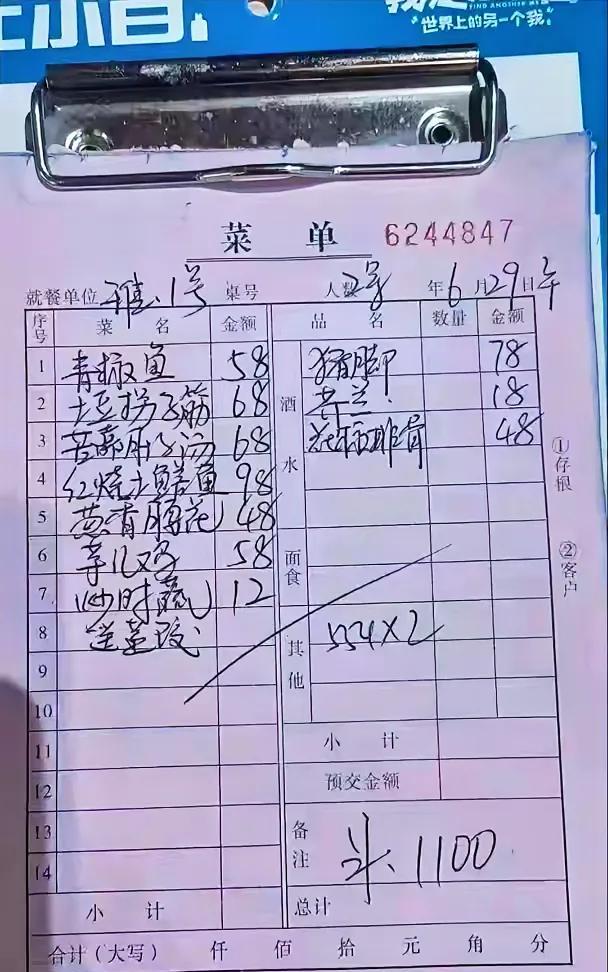 世界上的另一个我
菜 单 6244847
就餐单位 1号 桌号 人数 2号 年6月29日午
序号 菜 名 金额 品 名 数量 金额
1 青椒鱼 58 酒水 猪脚 78
2 土豆拐子筋 68 18
3 68 花 排骨 48
4 红烧土鳝鱼 98
5 葱香腰花 48
6 鸡 58 面食
7 炒时蔬 12
8 送 其他 554×2
9
10
11 小 计
12 预交金额
13 备注 1100
14
小 计 总计
合计(大写) 仟 佰 拾 元 角 分
①存根
②客户